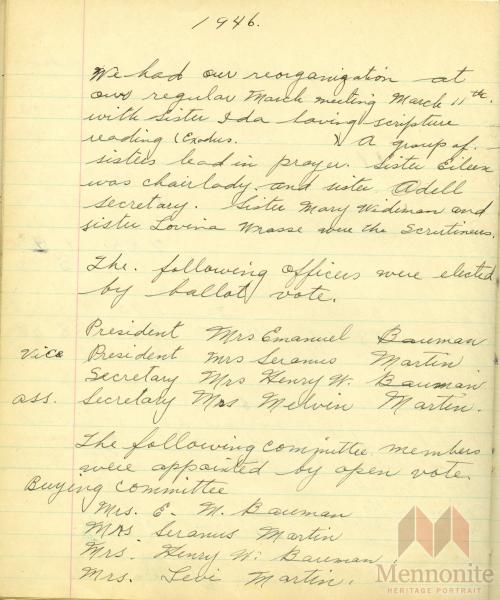 1946.
We had our reorganization at
our regular March meeting March 11th.
with Sister Ida having scripture
reading (Exodus. ) A group of
sisters lead in prayer. Sister Eileen
was chairlady and sister Adell
secretary. Sister Mary Widiman and
sister Lovina Wrasse were the Scrutineers.
The following officers were elected
by ballot vote.
President Mrs Emanuel Bauman
Vice President Mrs Seranus Martin
Secretary Mrs Henry W. Bauman
ass. Secretary Mrs Melvin Martin.
The following committee members
were appointed by open vote.
Buying committee
Mrs. E. M. Bauman
Mrs Seranus Martin
Mrs. Henry W. Bauman.
Mrs. Levi Martin.
Mennonite
HERITAGE PORTRAIT